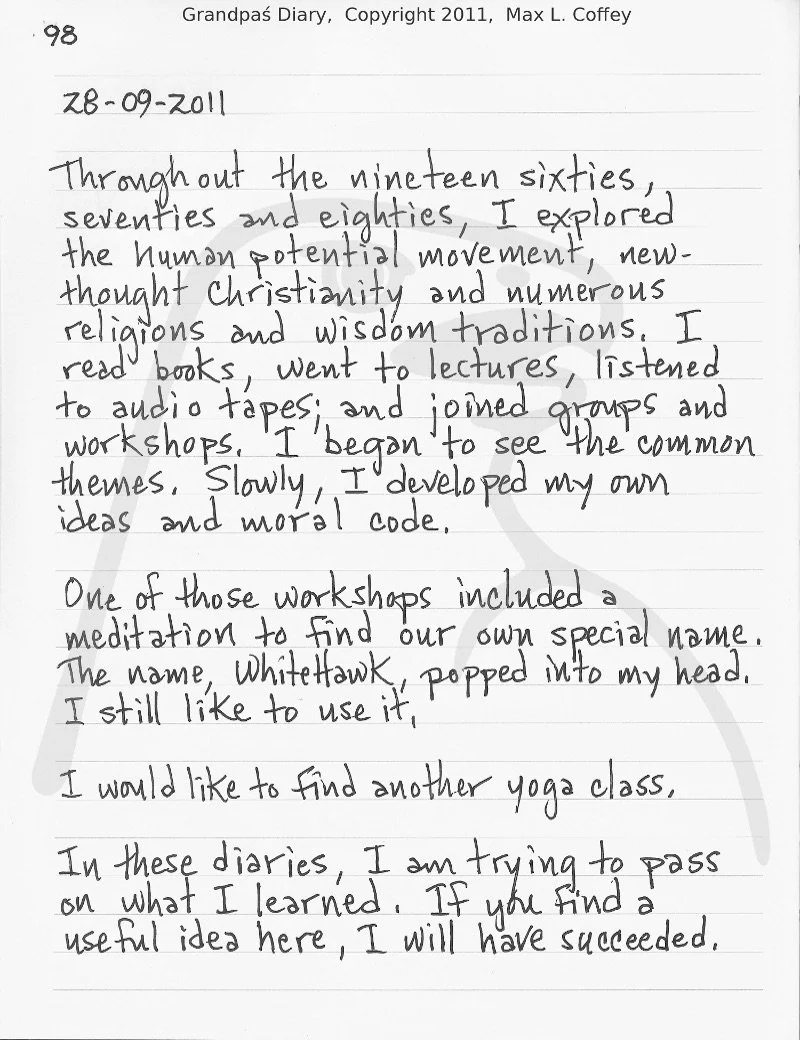 Grandpaś Diary, Copyright 2011, Max L. Coffey
98
28-09-2011
Throughout the nineteen sixties,
seventies and eighties, I explored
the human potential movement, new-
thought Christianity and numerous
religions and wisdom traditions. I
read books, went to lectures, listened
to audio tapes; and joined groups and
workshops. I began to see the common
themes. Slowly, I developed my own
ideas and moral code.
One of those workshops included a
meditation to find our own special name.
The name, WhiteHawk, popped into my head.
I still like to use it.
I would like to find another yoga class.
In these diaries, I am trying to pass
on what I learned. If you find a
useful idea here, I will have succeeded.